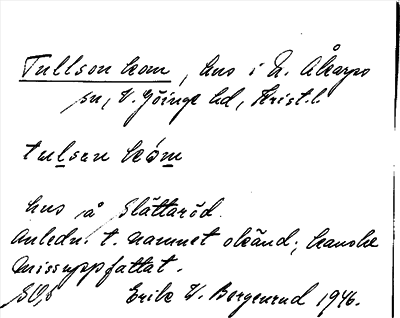 Tullson kom, hus i N. Åkarps
sn, V. Göinge hd, Krist. l.
tulson kóm
hus å Slättaröd.
Anledn. t. namnet okänd; kanske
missuppfattat.
Erik V. Bergenrud 1946.